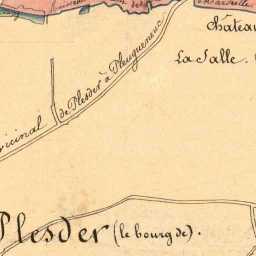 Chateau
La Salle.
vicinal de Plesder à Pleugueneuc
Plesder (le bourg de).